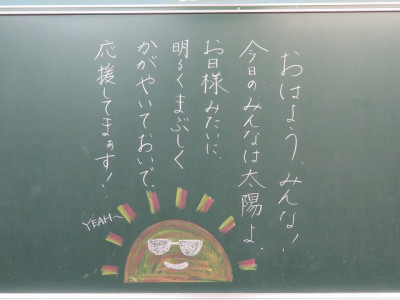 おはよう、みんな!
今日のみんなは太陽よ。
お日様みたいに、
明るくまぶしく
かがやいておいで。
応援してまぁす!
YEAH〜